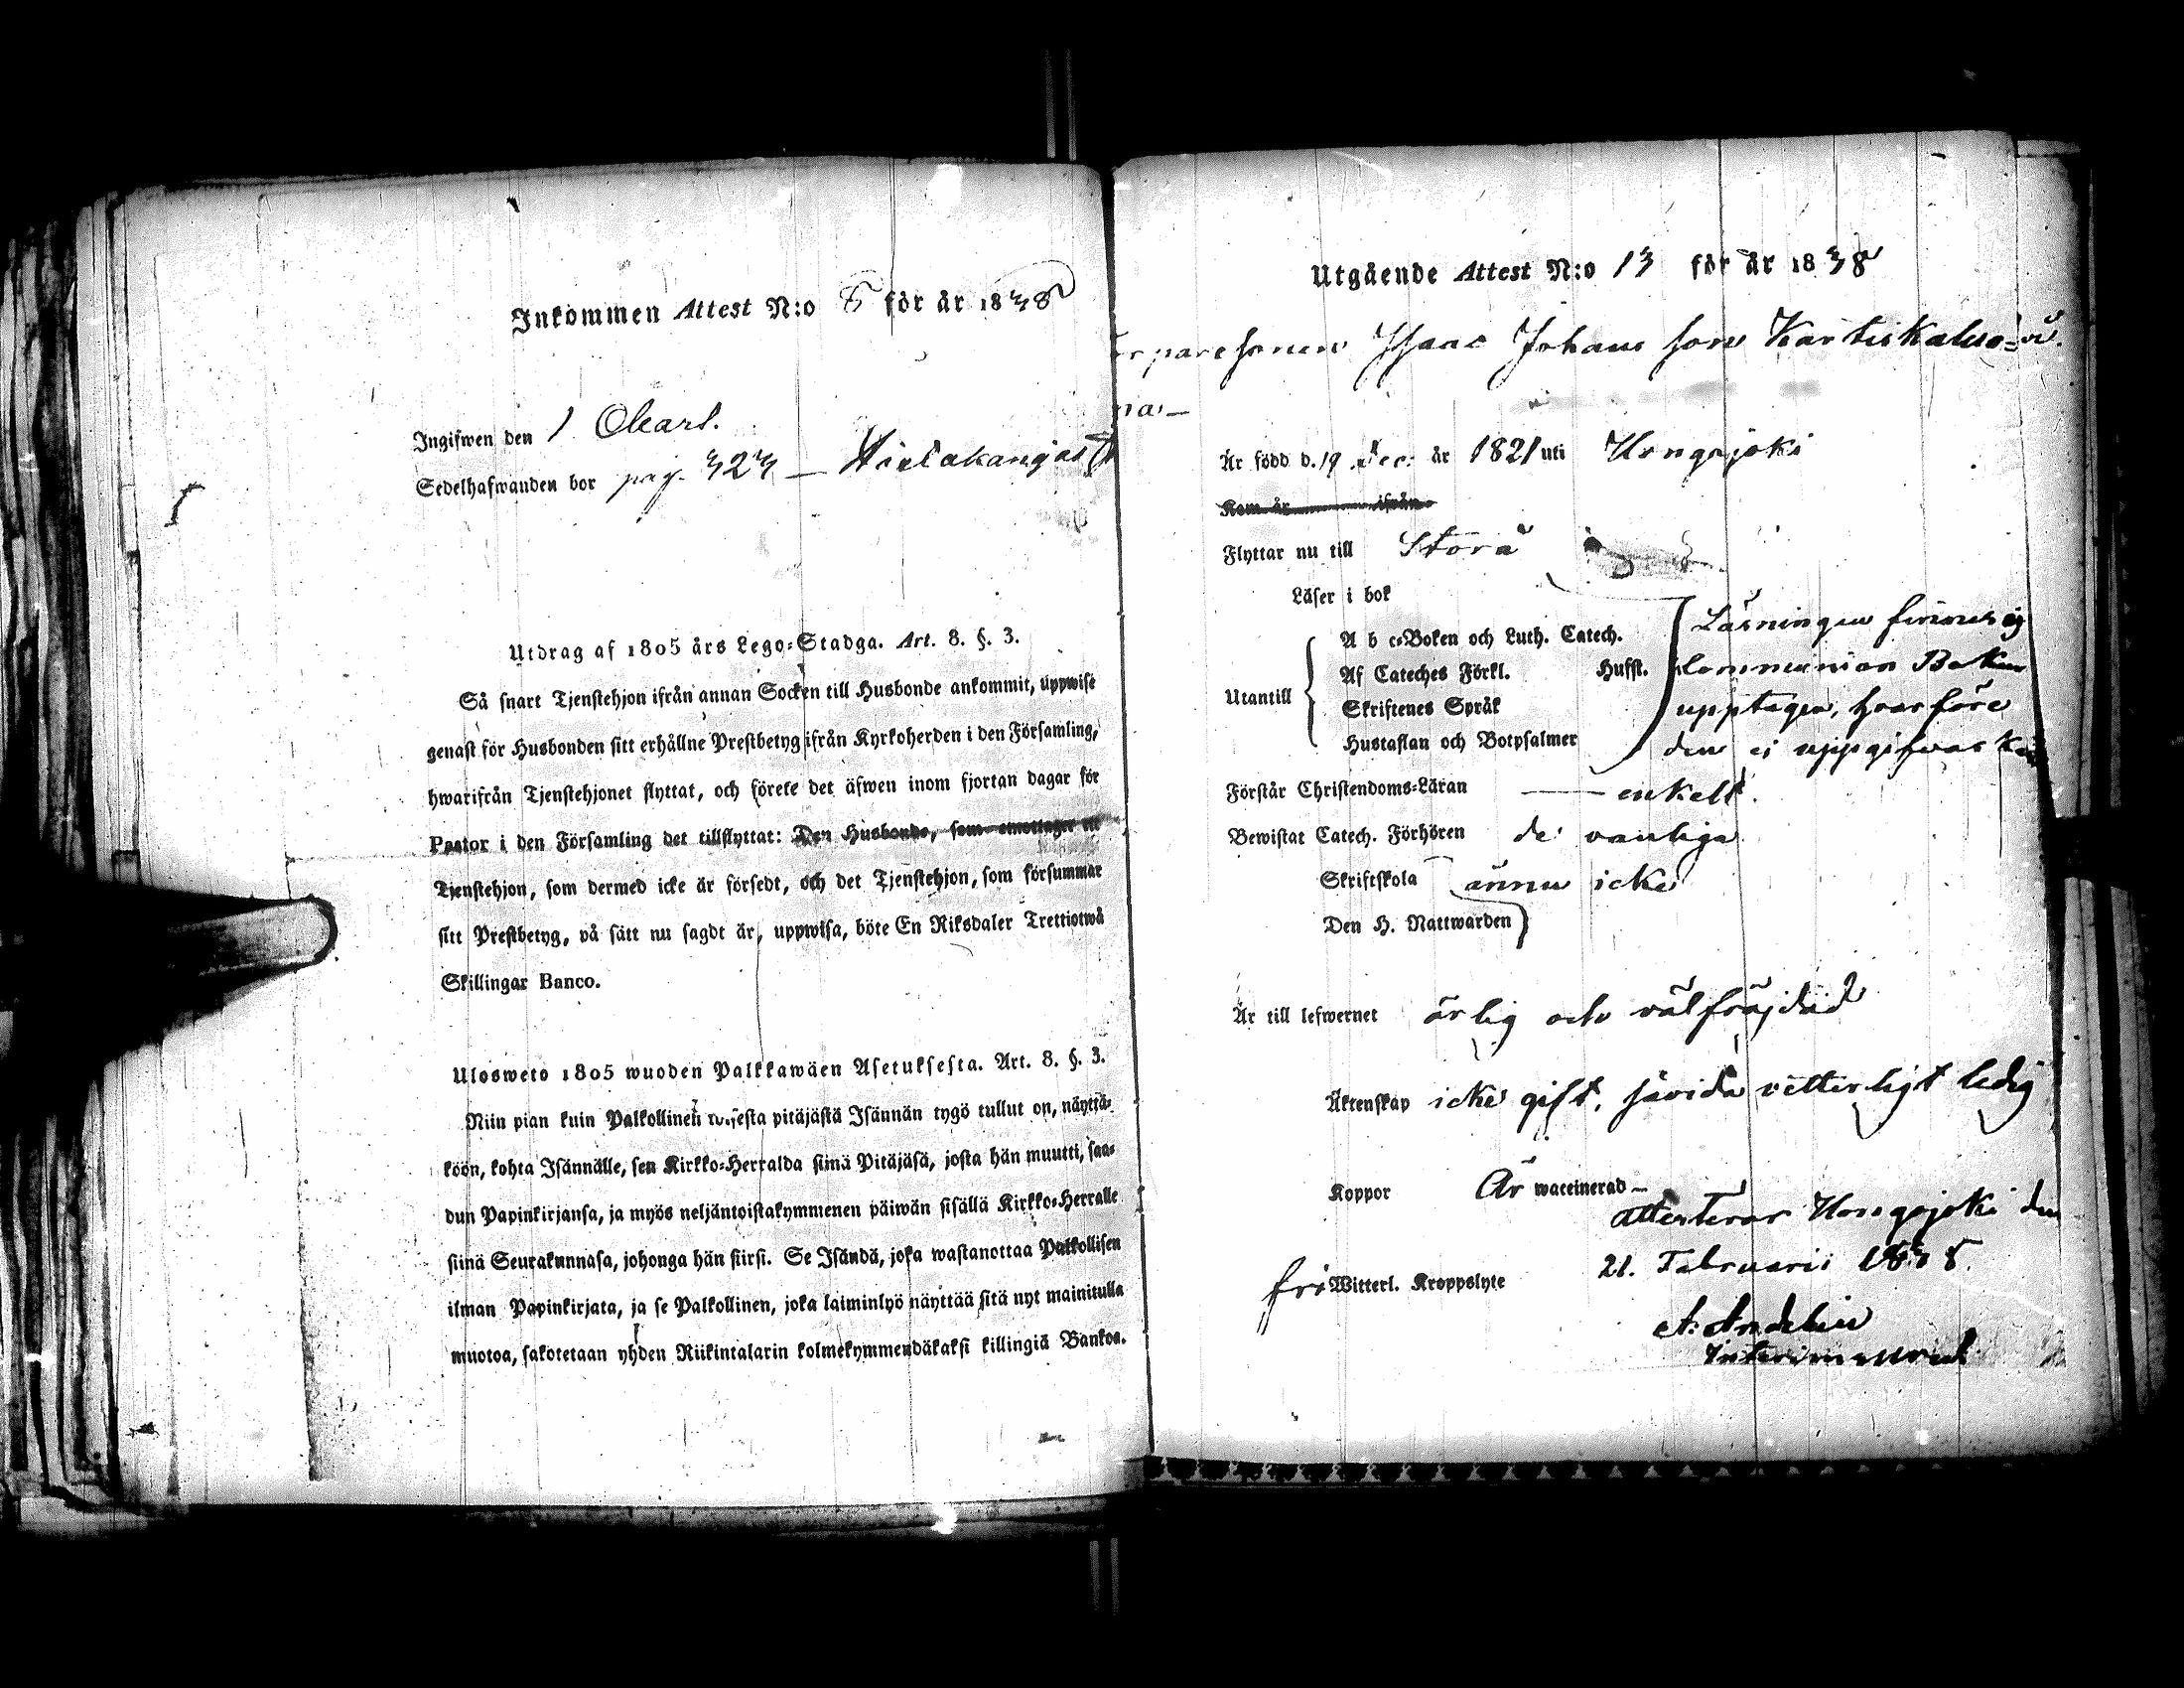 Inkommen Attest N:o 5 för år 1838
Ingifwen den 1 Mart.
Sedelhafwanden bor pag. 323 —
Utdrag af 1805 års Lego-Stadga. Art. 8. §. 3.
Så snart Tjenstehjon ifrån annan Socken till Husbonde ankommit, uppwise
genast för Husbonden sitt erhållne Prestbetyg ifrån Kyrkoherden i den Församling,
hwarifrån Tjenstehjonet flyttat, och förete det äfwen inom fjortan dagar för
Pastor i den Församling det tillflyttat: Den Husbonde, som emottager ett
Tjenstehjon, som dermed icke är försedt, och det Tjenstehjon, som försummar
sitt Prestbetyg, på sätt nu sagdt är, uppwisa, böte En Riksdaler Trettiotwå
Skillingar Banco.
Ulosweto 1805 wuoden Palkkawäen Asetuksesta. Art. 8. §. 3.
Niin pian kuin Palkollinen toisesta pitäjästä Isännän tygö tullut on, näyttä-
köön, kohta Isännälle, sen Kirkko-Herralda siinä Pitäjäsä, josta hän muutti, saa-
dun Papinkirjansa, ja myös neljäntoistakymmenen päiwän sisällä Kirkko-Herralle
siinä Seurakunnasa, johonga hän siirsi. Se Isändä, joka wastanottaa Palkollisen
ilman Papinkirjata, ja se Palkollinen, joka laiminlyö näyttää sitä nyt mainitulla
muotoa, sakotetaan yhden Riikintalarin kolmekymmendäkaksi killingiä Bankoa.
Utgående Attest N:o 13 för år 1838
sonen Isaac Johans son
Är född d. 19 Dec: år 1821 uti Hongojoki
Kom år ifrån
Flyttar nu till Storå
Läser i bok
Utantill
A b c-Boken och Luth. Catech.
Af Cateches Förkl. Husst.
Skriftenes Språk
Hustaflan och Botpsalmer
Läsningen finnes ej
Communion Boken
upptagen, hvarföre
den ej uppgifvas kan
Förstår Christendoms-Läran — enkelt.
Bewistat Catech. Förhören de vanliga
Skriftskola ännu icke
Den H. Nattwarden
Är till lefwernet ärlig och välfräjdad
Äktenskap icke gift, såvida vetterligt ledig
Koppor Är waccinerad —
Attesterar Hongojoki den
21. Februarii 1838.
fri Witterl. Kroppslyte
A: Andelin